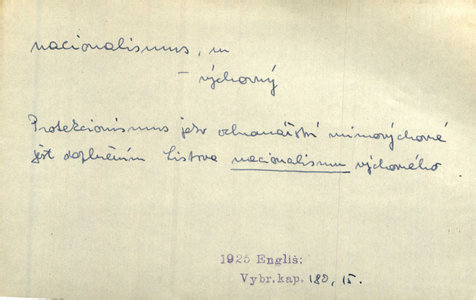 nacionalismus, m
– výchovný
Protekcionismus jako ochranářství mimovýchovné
jest doplněním Listova nacionalismu výchovného.
1925 Engliš:
Vybr.kap. 180, 15.